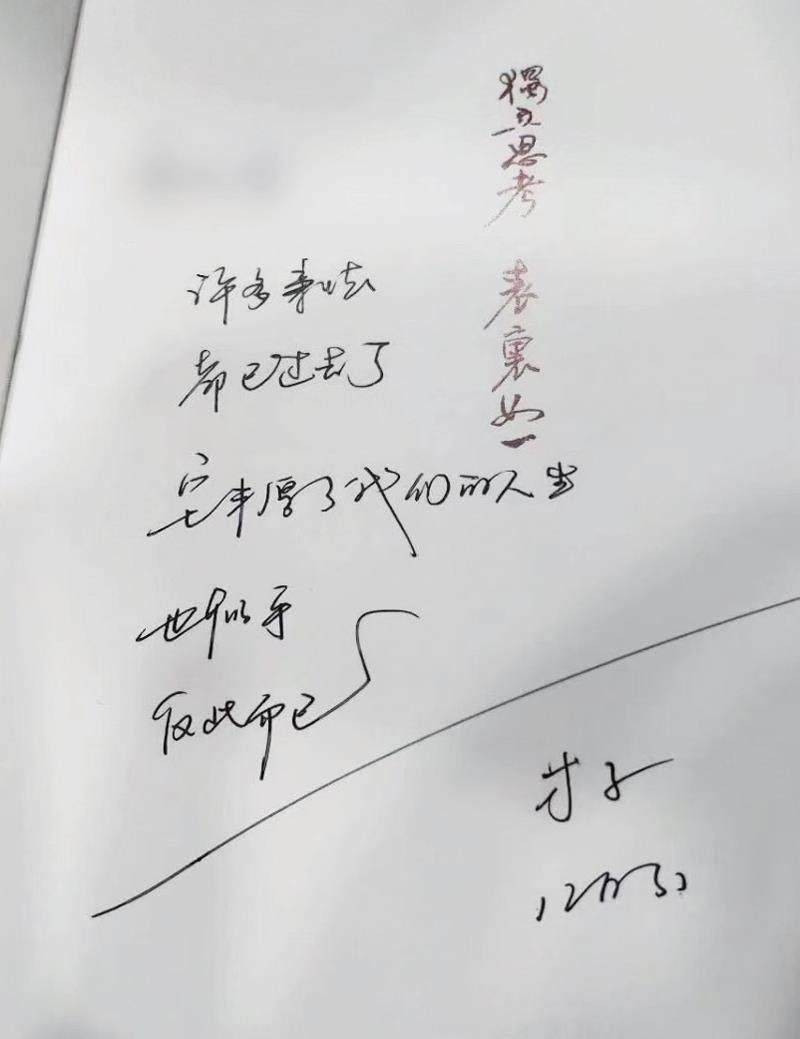 獨立思考 表裏如一
许多来去
都已过去了
它丰厚了我们的人生
也似乎
仅此而已
才子
12月3日